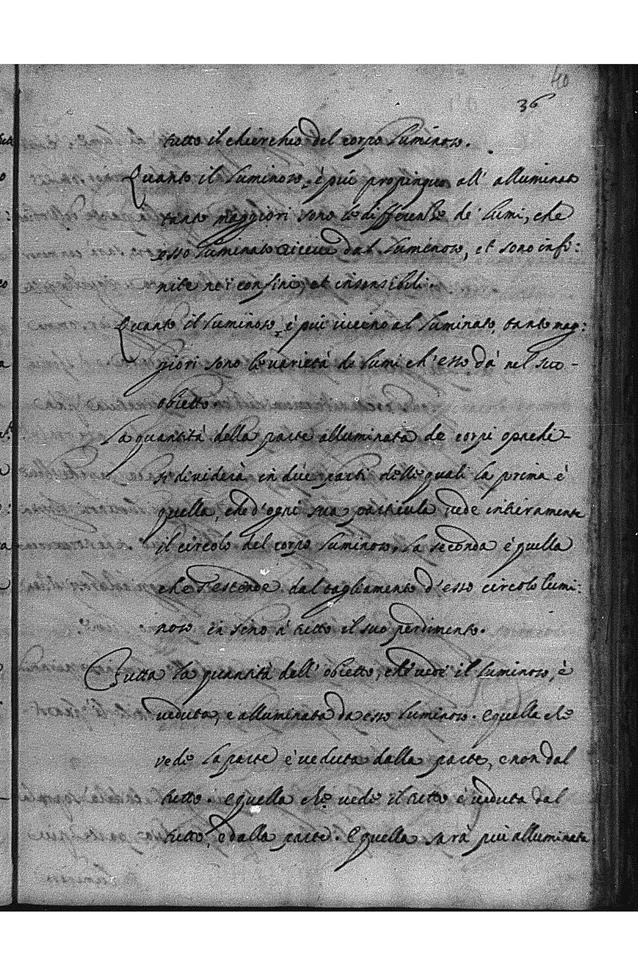 40
36
tutto il chierchio del corpo luminoso.
Quanto il luminoso, è più propinquo all' alluminato
tanto maggiori sono le differenze de' lumi, che
esso luminato riceve dal luminoso, et sono infi:
nite ne i confini, et insensibili.
Quanto il luminoso, è più vicino al luminato, tanto mag:
giori sono le varietà de lumi ch' esso dà nel suo
obietto.
La quantità della parte alluminata de corpi opachi
si dividerà in due parti delle quali la prima è
quella, che d' ogni sua particula vede intieramente
il circolo del corpo luminoso, la seconda è quella
che s' estende dal tagliamento d' esso circolo lumi:
noso in sino à tutto il suo perdimento.
Tutta la quantità dell' obietto, che vede il luminoso, è
veduta, e alluminata da esso luminoso. E quella che
vede la parte è veduta dalla parte, e non dal
tutto. e quella che vede il tutto è veduta dal
tutto, e dalla parte. E quella sarà più alluminata